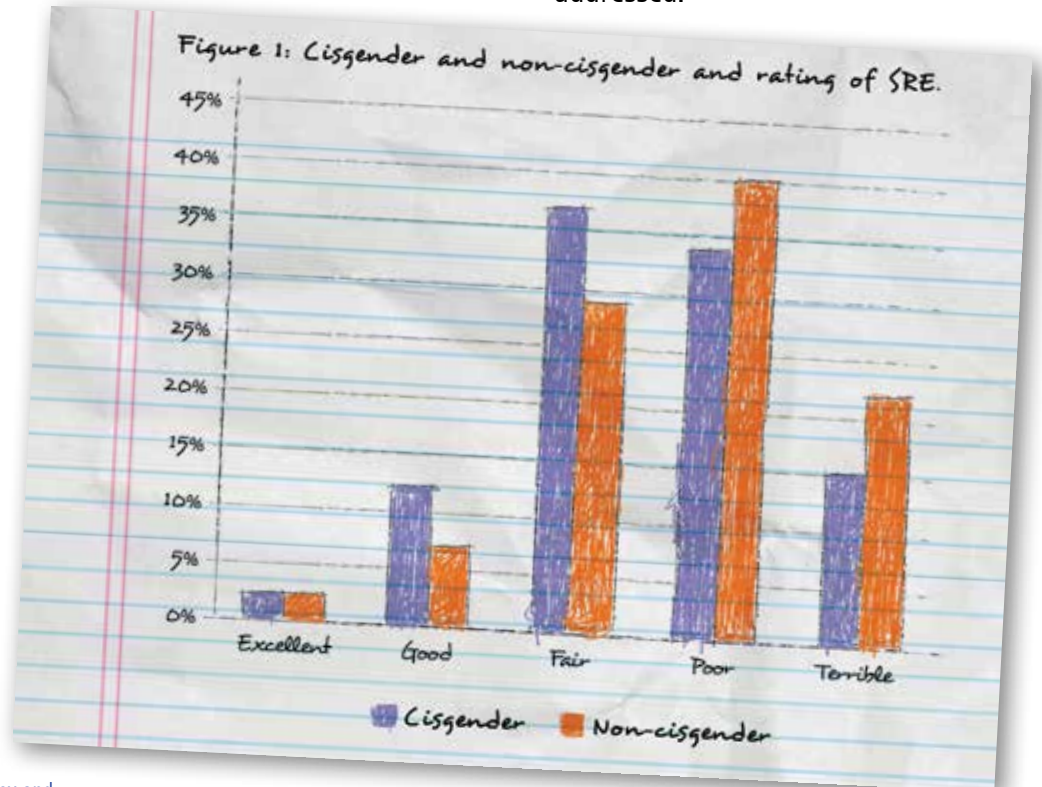 addressed.
Figure 1: Cisgender and non-cisgender and rating of SRE.
45%
40%
35%
30%
25%
20%
15%
10%
5%
0%
Excellent Good Fair Poor Terrible
Cisgender Non-cisgender